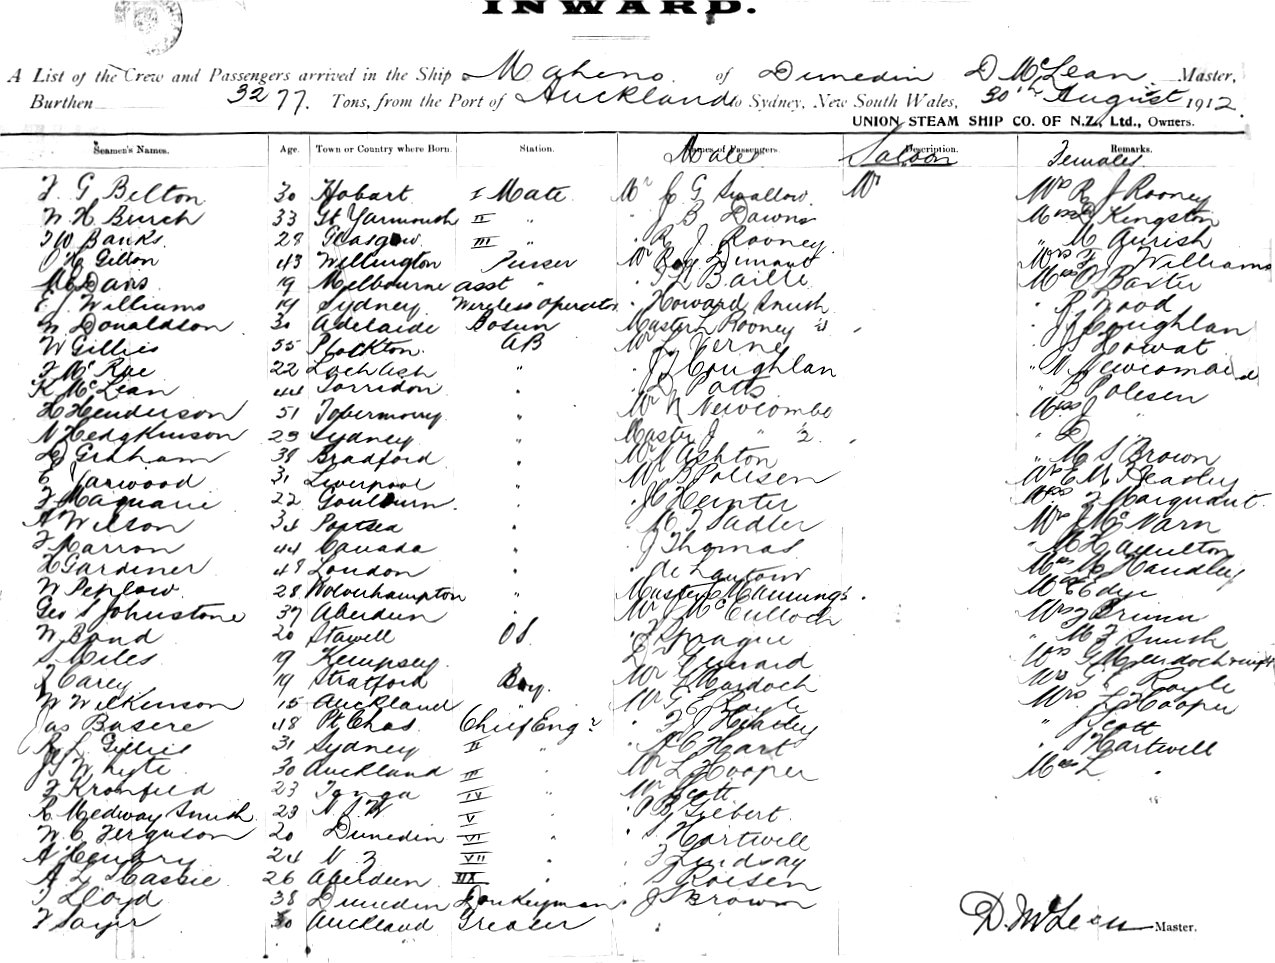 INWARD.
A List of the Crew and Passengers arrived in the Ship Maheno of Dunedin D McLean Master,
Burthen 3277 Tons, from the Port of Auckland to Sydney, New South Wales, 30th August 1912.
UNION STEAM SHIP CO. OF N.Z., Ltd., Owners.
Seamen's Names. Age. Town or Country where Born. Station. Names of Passengers. Description. Remarks.
Males Saloon Females
F. G Belton 30 Hobart I Mate Mr J G Swallow Mr Mrs R J Rooney
W H Burch 33 Gt Yarmouth II " " J B Downs Miss Kingston
J W Banks 28 Glasgow III " " R J Rooney " M
O H Gillon 43 Wellington Purser Mr Roy Mrs F J Williams
Davis 19 Melbourne asst " " Baillie Miss Baxter
E J Williams 19 Sydney Wireless Operator " Howard Smith " R Wood
W Donaldson 30 Adelaide Bosun Master L Rooney " J Coughlan
W Gillies 55 Plockton AB Mr L Verney " J Howat
F McRae 22 Loch Ash " " J Coughlan " N Newcombe
K McLean 44 Torridon " Potts " B Polesen
H Henderson 51 Tobermorry " Mr N Newcombe Miss J "
N Hedgkinson 23 Sydney " Master J " ½ " D "
D Graham 38 Bradford " Mr Ashton " M S Brown
E Yarwood 31 Liverpool " Mr B Polesen Mr E M Deasley
F Maquarie 22 Goulburn " " Hunter Mrs Marquart
A Wilson 34 Portsea " " Sadler Mrs J McNarn
F Marron 44 Canada " " J Thomas " Hamilton
H Gardiner 48 London " " de Lautour Miss M Handley
W Peplow 28 Wolverhampton " Master C Mannings Miss E Edge
Geo S Johnstone 37 Aberdeen " Mr J McCulloch
W Bond 20 Stawell OS " Sprague " M F Smith
S Miles 19 Kempsey Mrs G Murdoch
J Carey 19 Stratford Mr G Murdoch Mrs G E Royle
W Wilkinson 15 Auckland Boy. Mr G E Royle Mrs L Hooper
Jas Basire 48 Pt Chas Chief Engr " F J Healey " Scott
R L Gillies 31 Sydney II " " A C Hart " Hartwell
J S Whyte 30 Auckland III " Mr L Hooper Miss L "
F Kronfeld 23 Tonga IV " Mr Scott
R Medway Smith 23 N S W V " " P B Gilbert
W C Ferguson 20 Dunedin VI " " Hartwell
A Hendry 24 N Z VII " " F Lindsay
A L Massie 26 Aberdeen " " Roesen
J Lloyd 38 Dunedin Donkeyman " J Brown
F Sayer 30 Auckland Greaser "
D. McLean Master.